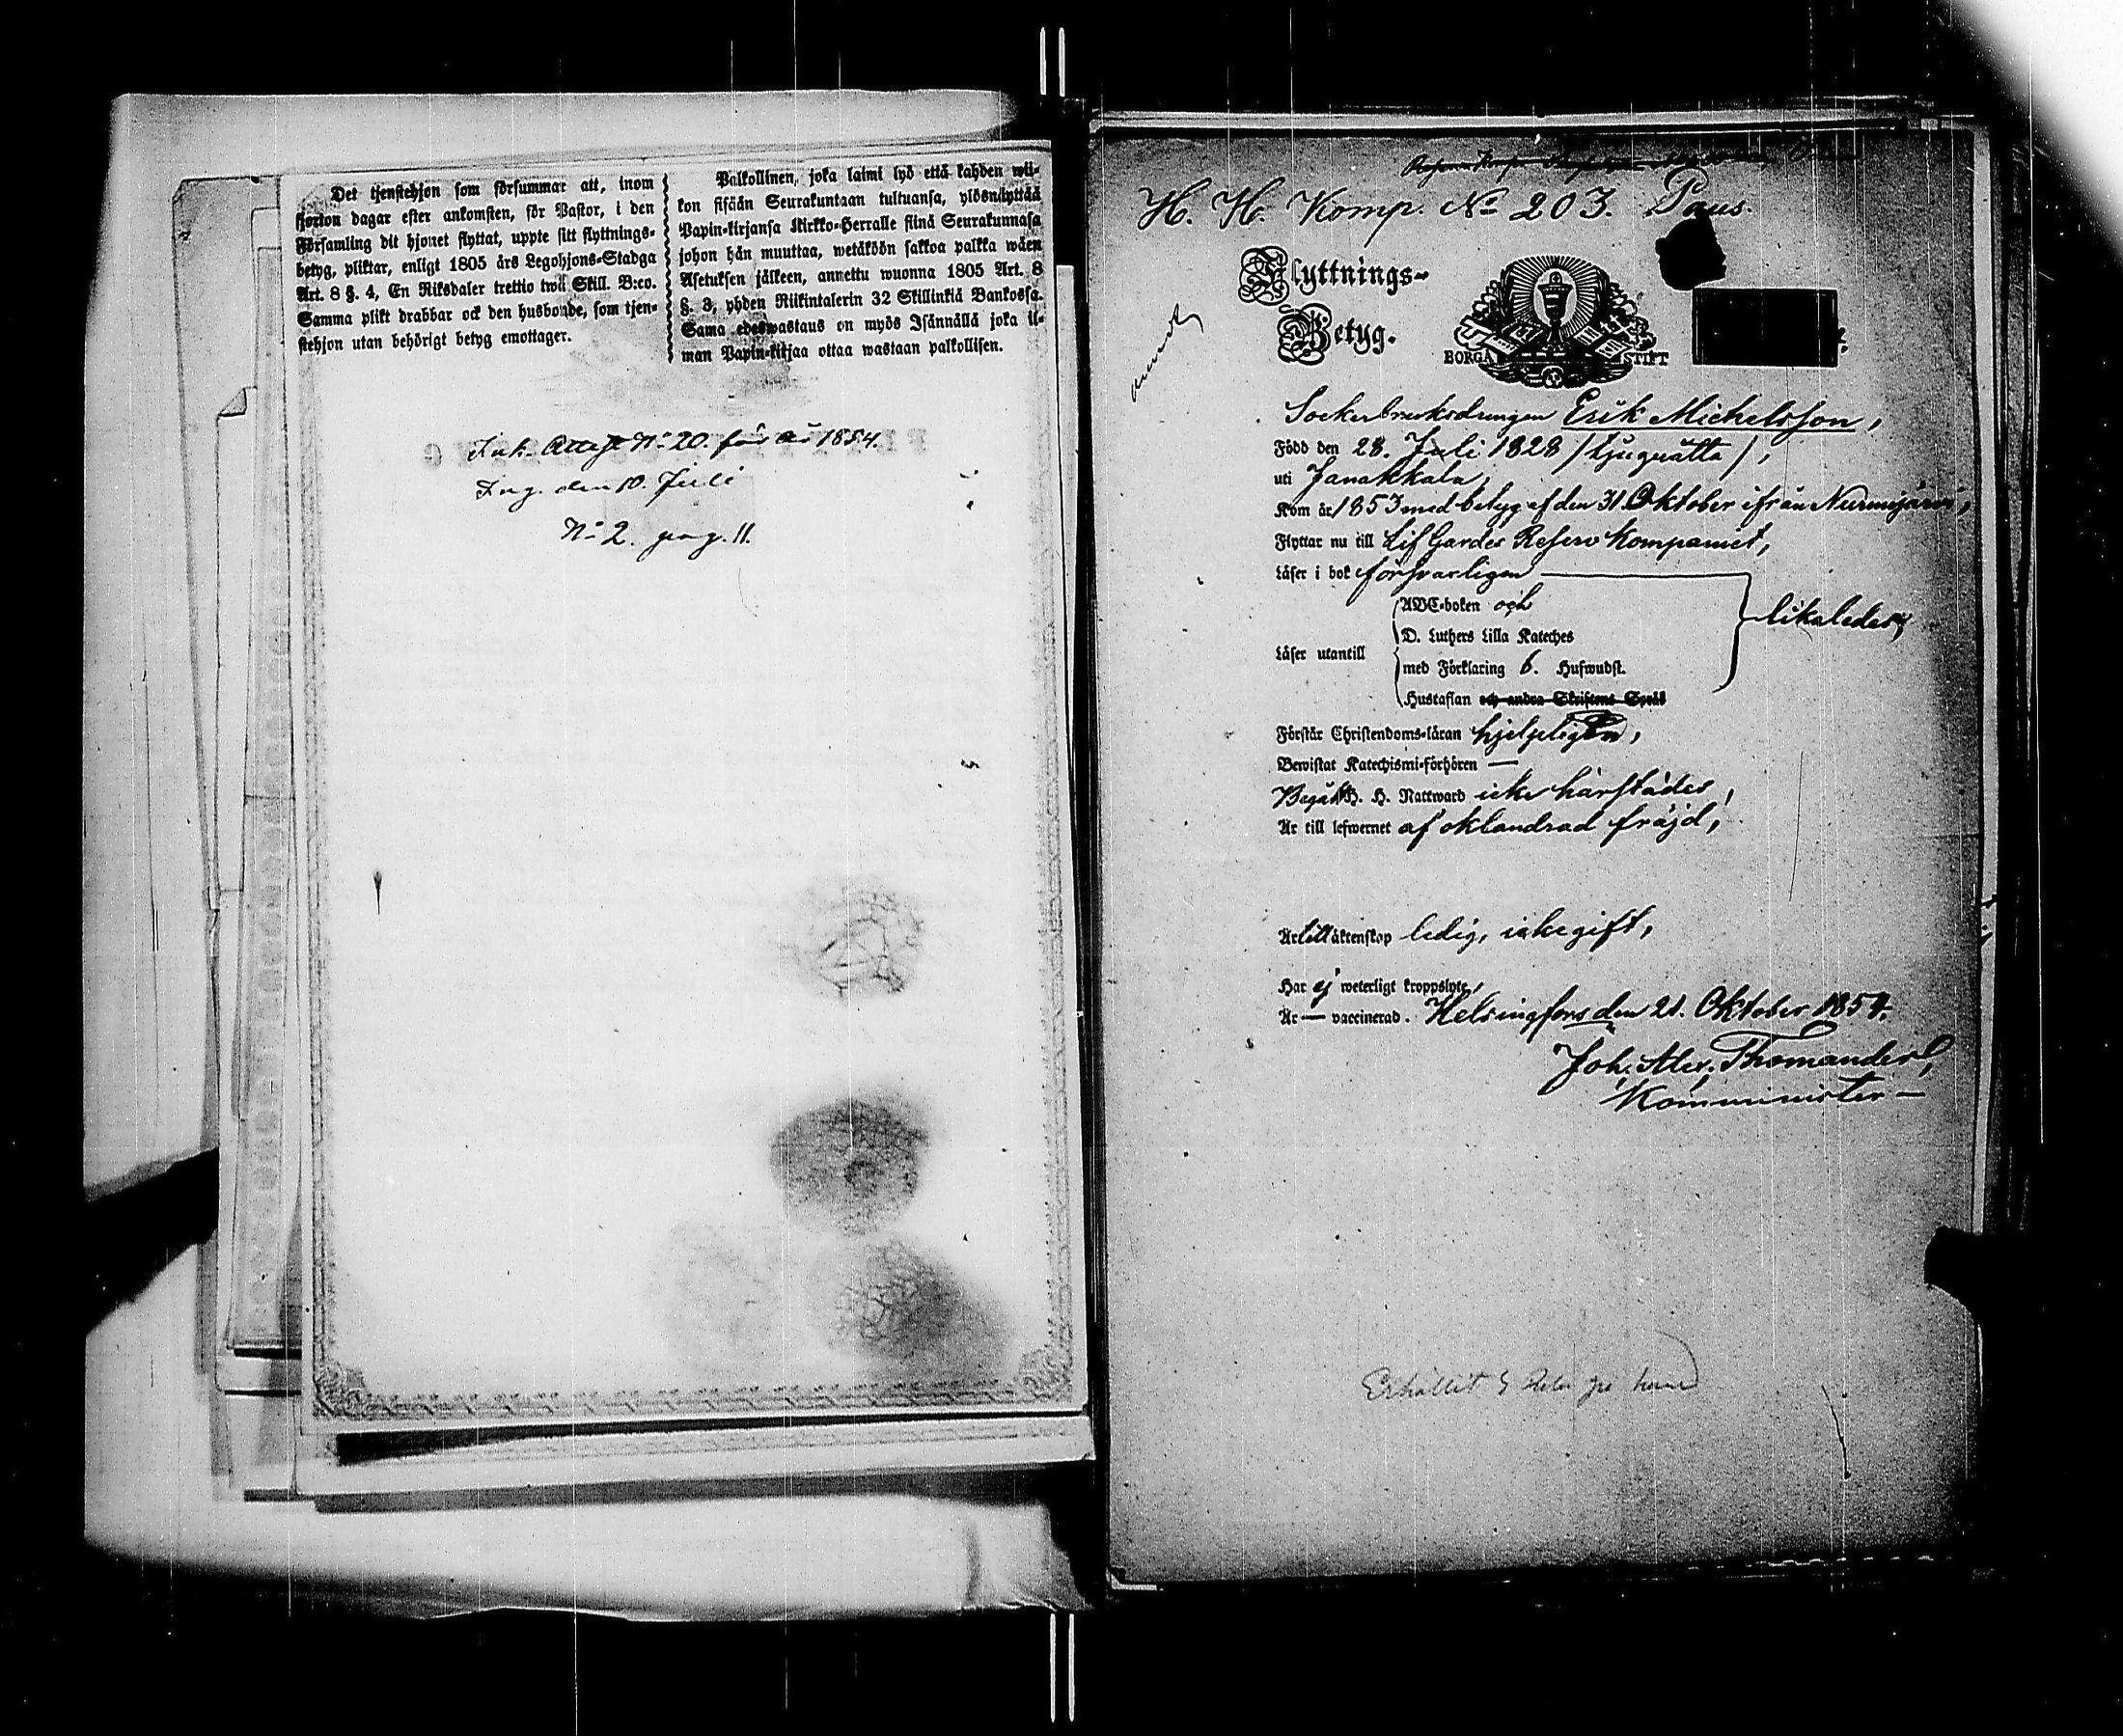 Det tjenstehjon som försummar att, inom
fjorton dagar efter ankomsten, för Pastor, i den
Församling dit hjonet flyttat, uppte sitt flyttnings-
betyg, pliktar, enligt 1805 års Legohjons-Stadga
Art. 8 §. 4, En Riksdaler trettio twå Skill. B:co.
Samma plikt drabbar ock den husbonde, som tjen-
stehjon utan behörigt betyg emottager.
Palkollinen, joka laimi lyö että kahden wii-
kon sisään Seurakuntaan tultuansa, ylösnäyttää
Papin-kirjansa Kirkko-Herralle siinä Seurakunnasa
johon hän muuttaa, wetäköön sakkoa palkka wäen
Asetuksen jälkeen, annettu wuonna 1805 Art. 8
§. 3, yhden Riikintalerin 32 Skillinkiä Bankossa.
Sama edeswastaus on myös Isännällä joka il-
man Papin-kirjaa ottaa wastaan palkollisen.
Ink. Attest No 20. för år 1854.
Ing. den 10. Juli
No 2. pag. 11.
H. H. Komp. No 203. Paus.
Flyttnings-
Betyg.
BORGÅ STIFT
Sockerbruksdrängen Erik Michelsson,
Född den 28. Juli 1828 /tjuguåtta/,
uti Janakkala,
Kom år 1853 med betyg af den 31 Oktober ifrån Nurmijärvi,
Flyttar nu till Lif Gardes Reserv Kompaniet,
Läser i bok försvarligen
ABC-boken och
D. Luthers Lilla Kateches
Läser utantill
med Förklaring 6. Hufwudst.
Hustaflan och andra Skriftens Språk
likaledes,
Förstår Christendoms-läran hjelpeligen,
Bewistat Katechismi-förhören —
Begått H. H. Nattward icke härstädes,
Är till lefwernet af oklandrad fräjd,
Är till äktenskap ledig, icke gift,
Har ej weterligt kroppslyte,
Är — vaccinerad. Helsingfors den 21. Oktober 1854.
Joh. Alex. Thomander,
Komminister —
Erhållit